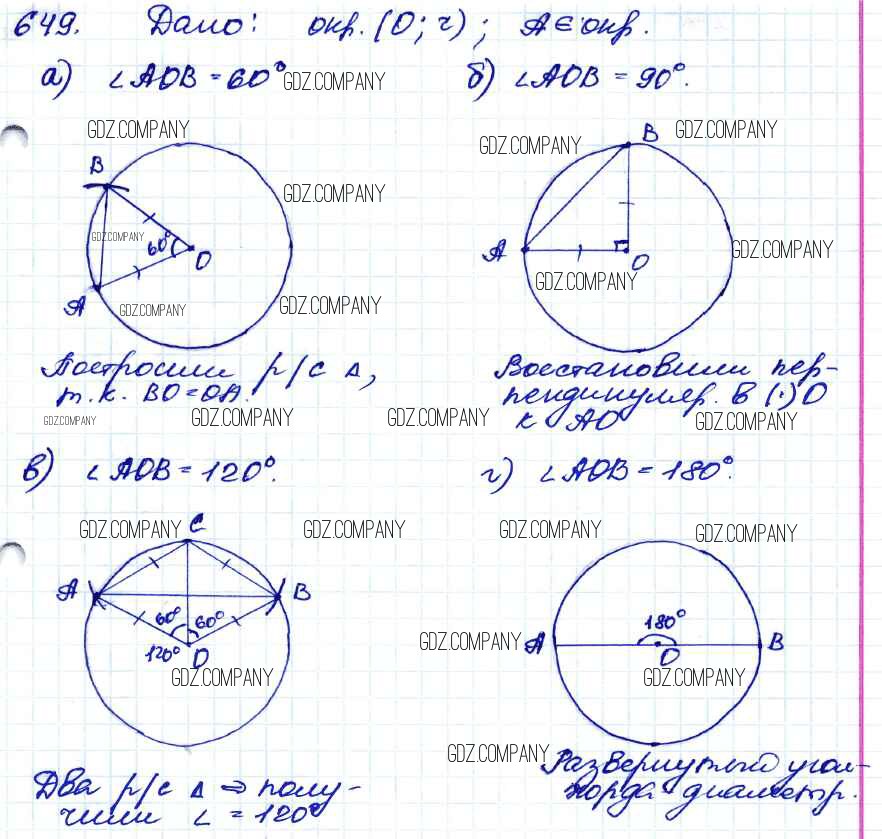 649. Дано: окр. (O; r); A ∈ окр.
а) ∠AOB = 60° GDZ.COMPANY
б) ∠AOB = 90°.
GDZ.COMPANY
GDZ.COMPANY
B
GDZ.COMPANY
GDZ.COMPANY
B
GDZ.COMPANY
GDZ.COMPANY
60°
O
A
GDZ.COMPANY
GDZ.COMPANY
A
O
GDZ.COMPANY
GDZ.COMPANY
Построили р/с Δ,
т.к. BO = OA.
Восстановили пер-
пендикуляр. в (·) O
к AO
GDZ.COMPANY
GDZ.COMPANY
GDZ.COMPANY
GDZ.COMPANY
в) ∠AOB = 120°.
г) ∠AOB = 180°.
GDZ.COMPANY
C
GDZ.COMPANY
GDZ.COMPANY
GDZ.COMPANY
A
B
60° 60°
120° O
GDZ.COMPANY
GDZ.COMPANY
A
180°
O
B
GDZ.COMPANY
GDZ.COMPANY
Два р/с Δ ⇒ полу-
чили ∠ = 120°
Развернутый угол-
хорда диаметр.